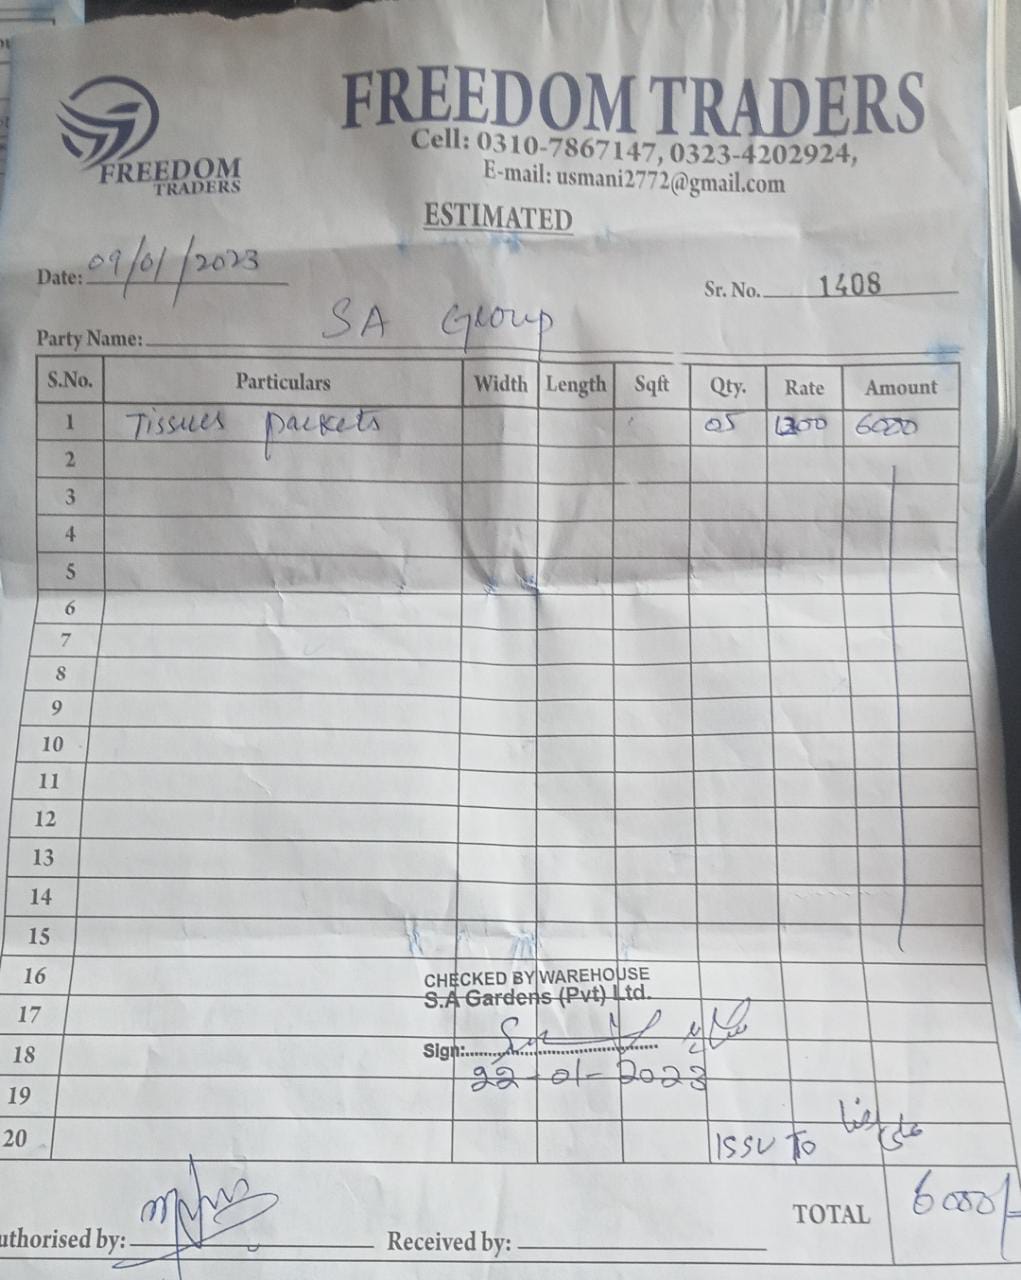 FREEDOM TRADERS
FREEDOM
TRADERS
Cell: 0310-7867147, 0323-4202924,
E-mail: usmani2772@gmail.com
ESTIMATED
Date: 09/01/2023
Sr. No. 1408
Party Name: SA Group
S.No. Particulars Width Length Sqft Qty. Rate Amount
1 Tissues packets 05 1200 6000
2
3
4
5
6
7
8
9
10
11
12
13
14
15
16
CHECKED BY WAREHOUSE
S.A Gardens (Pvt) Ltd.
17
18
Sign:
22-01-2023
19
20 ISSU To
TOTAL 6000/-
uthorised by:
Received by: